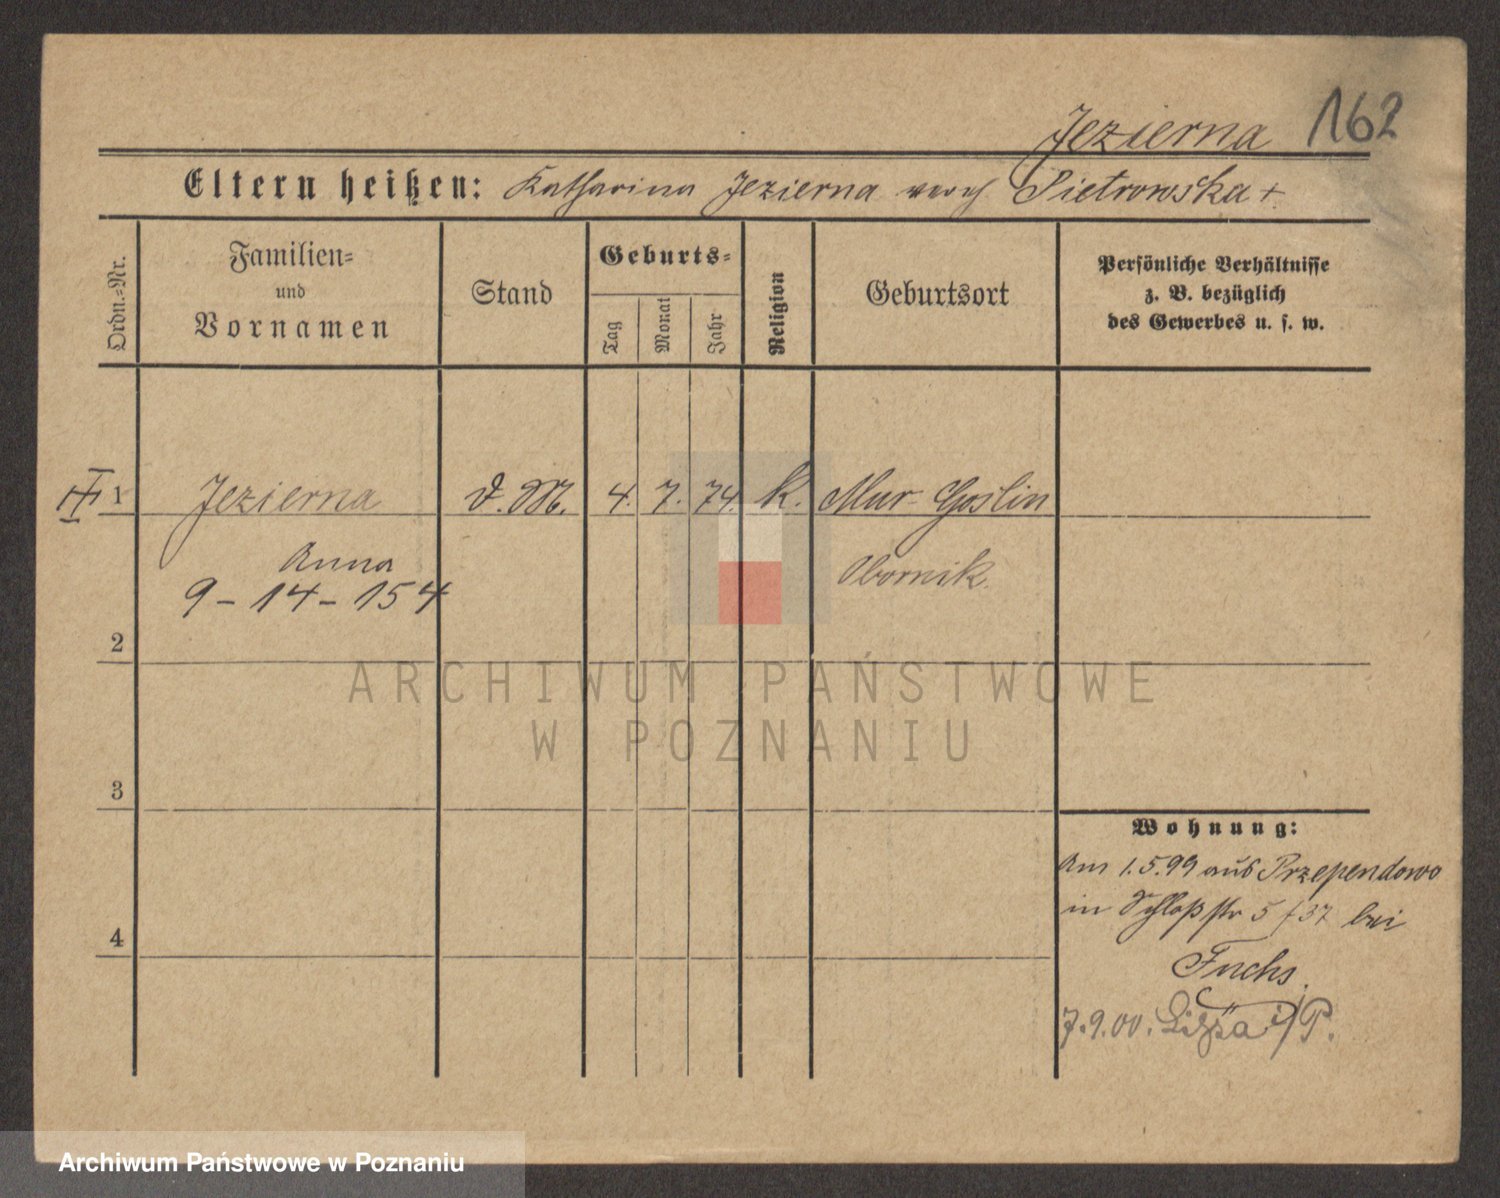 Jezierna 162
Eltern heißen: Katharina Jezierna verh Pietrowska +
Ordn.-Nr.
Familien-
und
Vornamen
Stand
Geburts-
Tag
Monat
Jahr
Religion
Geburtsort
Persönliche Verhältnisse
z. B. bezüglich
des Gewerbes u. s. w.
1 Jezierna d. M. 4. 7. 74. k. Mur- Goslin
Anna Obornik
9-14-154
2
ARCHIWUM PAŃSTWOWE
W POZNANIU
3
Wohnung:
Am 1.5.99 aus Przependowo
in Schloßstr 5 /37 bei
4
Fuchs.
7.9.00. i/P.
Archiwum Państwowe w Poznaniu